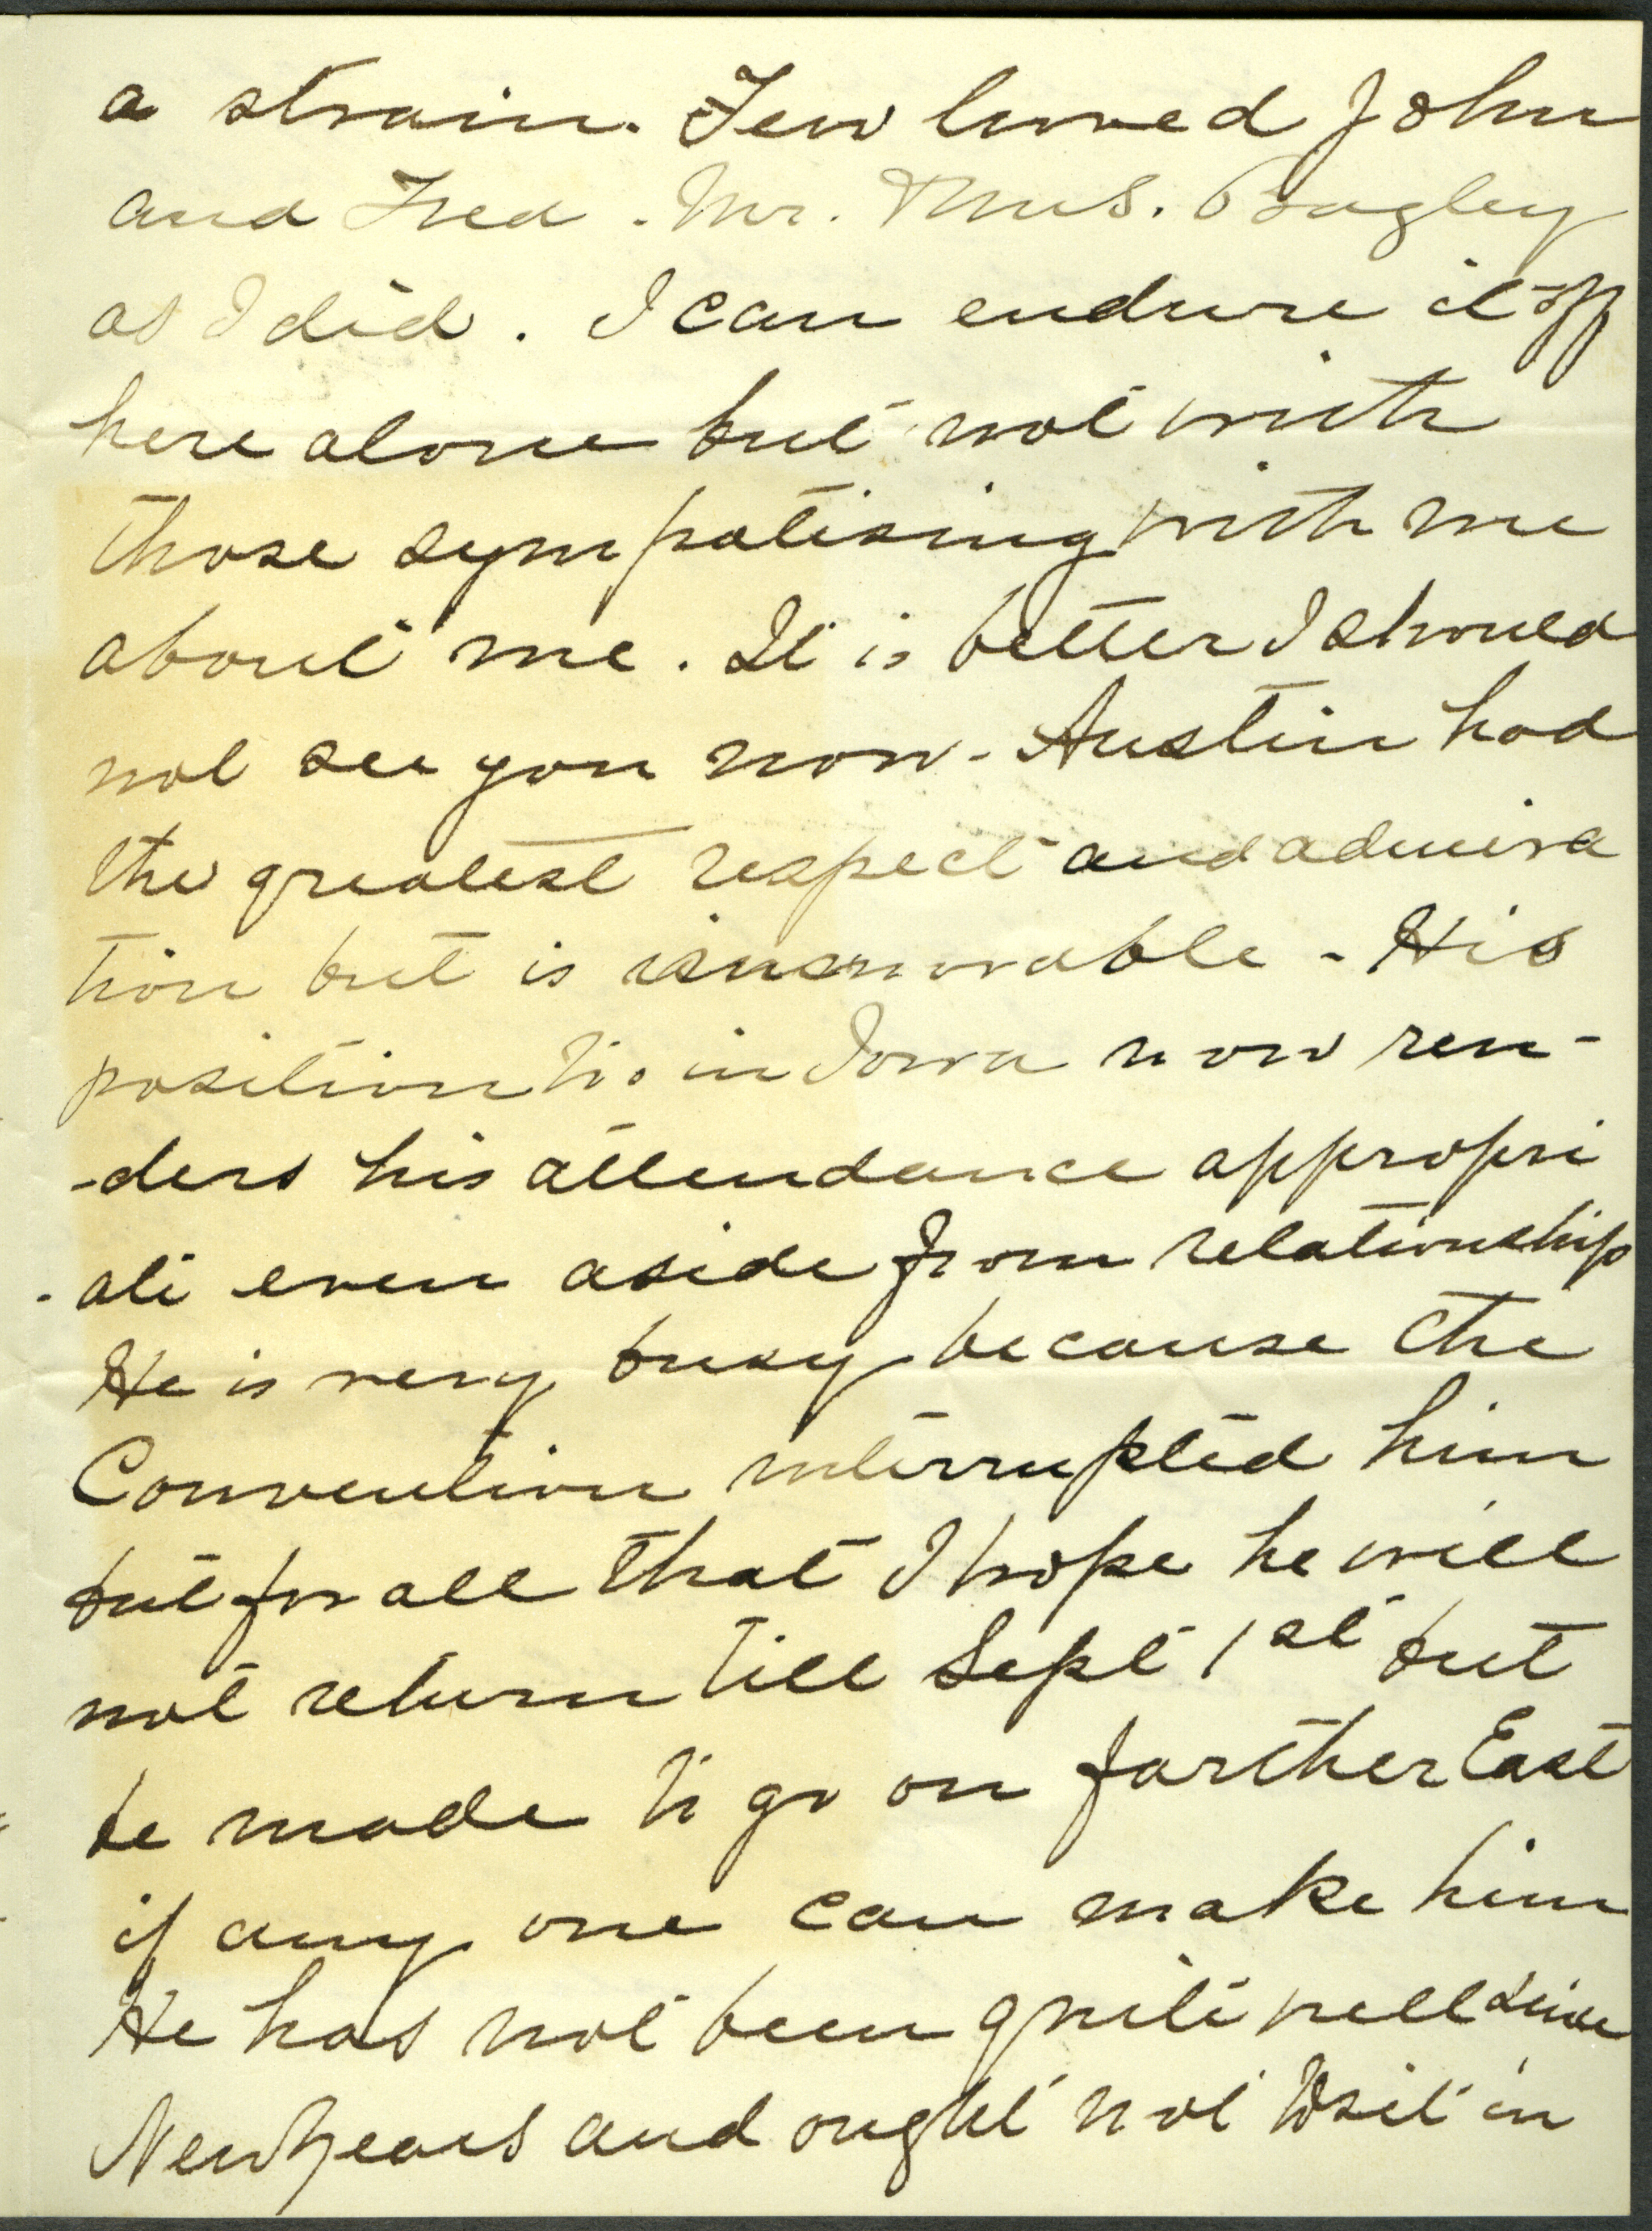 a strain. Few loved John
and Fred. Mr. & Mrs. Bagley
as I did. I can endure it off
here alone but not with
those sympatising with me
about me. It is better I should
not see you now - Austin had
the greatest respect and admira
tion but is immovable - His
position to in Iowa now ren-
-ders his attendance appropri
-ate even aside from relationship
He is very busy because the
Convention interrupted him
but for all that I hope he will
not return till Sept 1st but
be made to go on farther East
if any one can make him
He has not been quite well since
New Years and ought not to sit in